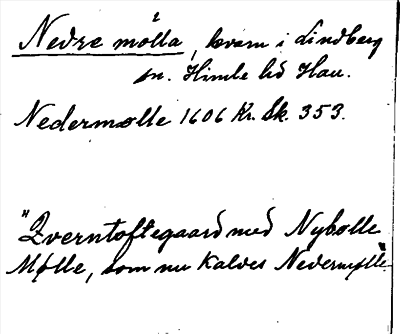 Nedre mölla, kvarn i Lindberg
sn. Himle hd Hall.
Nedermølle 1606 Kr. Sk. 353.
"Qverntoftegaard med Nybølle
Mølle, som nu kaldes Nedermølle"